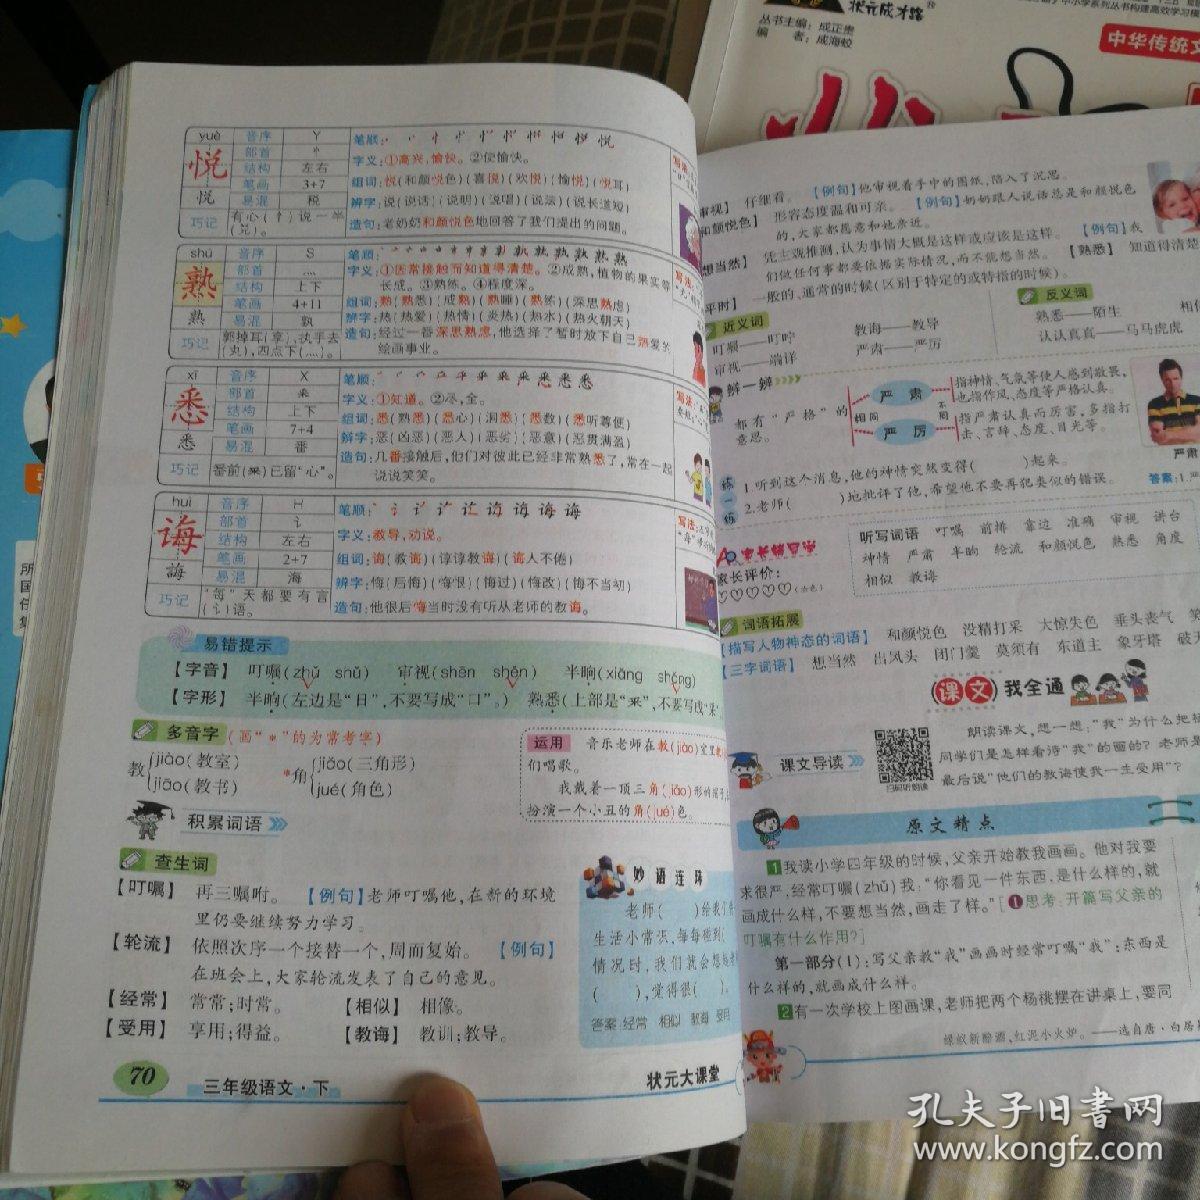 状元成才路®
丛书主编：成正贵
编 者：成海蛟
中华传统文
yuè
悦
悦
音序 Y
部首 忄
结构 左右
笔画 3+7
易混 税
巧记 有心(忄)说一半(兑)。
笔顺：
字义：①高兴，愉快。②使愉快。
组词：悦(和颜悦色)(喜悦)(欢悦)(愉悦)(悦耳)
辨字：说(说话)(说明)(说唱)(说法)(说长道短)
造句：老奶奶和颜悦色地回答了我们提出的问题。
shú
熟
熟
音序 S
部首 灬
结构 上下
笔画 4+11
易混 孰
巧记 郭掉耳(享)，执手去(丸)，四点下(灬)。
笔顺：
字义：①因常接触而知道得清楚。②成熟，植物的果实等
长成。③熟练。④程度深。
组词：熟(熟悉)(成熟)(熟睡)(熟练)(深思熟虑)
辨字：热(热爱)(热情)(炎热)(热水)(热火朝天)
造句：经过一番深思熟虑，他选择了暂时放下自己热爱的
绘画事业。
xī
悉
悉
音序 X
部首 釆
结构 上下
笔画 7+4
易混 番
巧记 番前(釆)已留“心”。
笔顺：
字义：①知道。②尽，全。
组词：悉(熟悉)(悉心)(洞悉)(悉数)(悉听尊便)
辨字：恶(凶恶)(恶人)(恶劣)(恶意)(恶贯满盈)
造句：几番接触后，他们对彼此已经非常熟悉了，常在一起
说说笑笑。
huì
诲
誨
音序 H
部首 讠
结构 左右
笔画 2+7
易混 海
巧记 “每”天都要有言(讠)语。
笔顺：
字义：教导，劝说。
组词：诲(教诲)(谆谆教诲)(诲人不倦)
辨字：悔(后悔)(悔恨)(悔过)(悔改)(悔不当初)
造句：他很后悔当时没有听从老师的教诲。
易错提示
【字音】 叮嘱(zhǔ shǔ) 审视(shēn shěn) 半晌(xiǎng shǎng)
【字形】 半晌(左边是“日”，不要写成“口”。) 熟悉(上部是“釆”，不要写成“采”
多音字 (画“*”的为常考字)
教 jiào(教室) jiāo(教书)
*角 jiǎo(三角形) jué(角色)
运用 音乐老师在教(jiào)室里教
们唱歌。
我戴着一顶三角(jiǎo)形的帽子，
扮演一个小丑的角(jué)色。
积累词语
查生词
【叮嘱】 再三嘱咐。 【例句】老师叮嘱他，在新的环境
里仍要继续努力学习。
【轮流】 依照次序一个接替一个，周而复始。 【例句】
在班会上，大家轮流发表了自己的意见。
【经常】 常常；时常。 【相似】 相像。
【受用】 享用；得益。 【教诲】 教训；教导。
妙语连珠
老师( )给我们
生活小常识，每每碰到
情况时，我们就会想起
( )，觉得很( )。
答案：经常 相似 教诲 受用
70
三年级语文·下
状元大课堂
审视】 仔细看。 【例句】他审视着手中的图纸，陷入了沉思。
和颜悦色】 形容态度温和可亲。 【例句】奶奶跟人说话总是和颜悦色
的，大家都愿意和她亲近。
想当然】 凭主观推测，认为事情大概是这样或应该是这样。 【例句】我
们做任何事都要依据实际情况，而不能想当然。 【熟悉】 知道得清楚
平时】 一般的、通常的时候(区别于特定的或特指的时候)。
近义词
叮嘱——叮咛 教诲——教导
审视——端详 严肃——严厉
反义词
熟悉——陌生
认认真真——马马虎虎
辨一辨
都有“严格”的
意思。
相同
严肃
不同
严厉
指神情、气氛等使人感到敬畏，
也指作风、态度等严格认真。
指严肃认真而厉害，多指打
击、言辞、态度、目光等。
严肃
练一练
1.听到这个消息，他的神情突然变得( )起来。
2.老师( )地批评了他，希望他不要再犯类似的错误。
答案：1.严
家长辅导学
家长评价：
(涂色)
听写词语 叮嘱 前排 靠边 准确 审视 讲台
神情 严肃 半晌 轮流 和颜悦色 熟悉 角度
相似 教诲
词语拓展
【描写人物神态的词语】 和颜悦色 没精打采 大惊失色 垂头丧气
【三字词语】 想当然 出风头 闭门羹 莫须有 东道主 象牙塔
课文 我全通
课文导读
扫码听朗读
朗读课文，想一想：“我”为什么把杨
同学们是怎样看待“我”的画的？老师是
最后说“他们的教诲使我一生受用”？
原文精点
1我读小学四年级的时候，父亲开始教我画画。他对我要
求很严，经常叮嘱(zhǔ)我：“你看见一件东西，是什么样的，就
画成什么样，不要想当然，画走了样。”[❶思考：开篇写父亲的
叮嘱有什么作用？]
第一部分(1)：写父亲教“我”画画时经常叮嘱“我”：东西是
什么样的，就画成什么样。
2有一次学校上图画课，老师把两个杨桃摆在讲桌上，要同
绿蚁新醅酒，红泥小火炉。——选自唐·白居易
孔夫子旧书网
www.kongfz.com